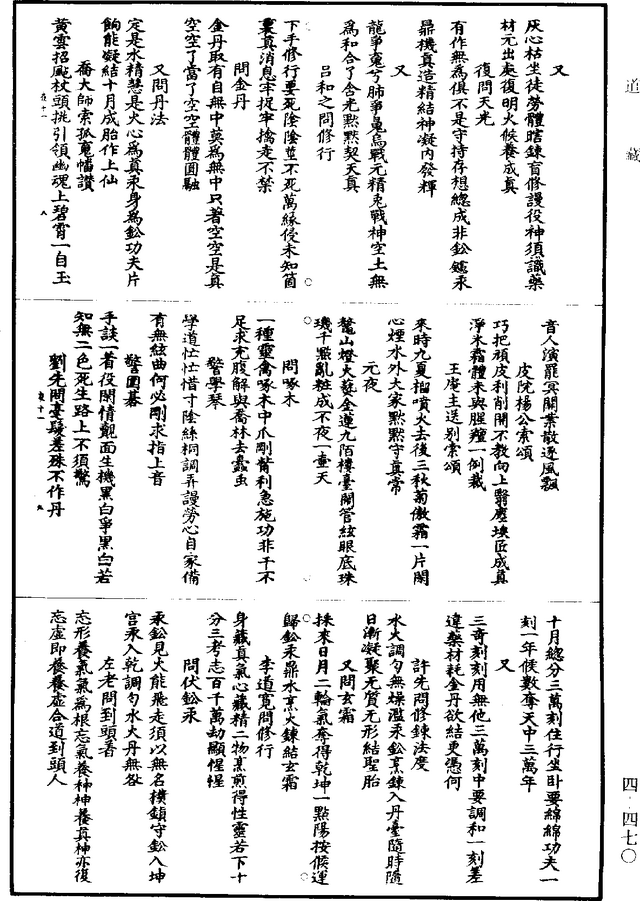 道藏
又
灰心枯坐徒勞體瞎鍊盲修謾役神須識藥
材元出處復明火候養成真
復問天光
有作無為俱不是守持存想總成非鈆鑪汞
鼎機真造精結神凝內發輝
又
龍爭䖘兮肺爭鳧烏戰元精兎戰神空土無
為和合了含光黙黙契天真
呂和之問修行
下手修行要死陰陰莖不死萬緣侵未知箇
裏真消息牢捉牢擒走不禁
問金丹
金丹取有自無中莫為無中只著空空是真
空空了當了空空體體圓融
又問丹法
定是水精慧是火心為真汞身為鈆功夫片
餉能凝結十月成胎作上仙
喬大師索孤魂幡讚
黃雲招颭杖頭挑引領幽魂上碧霄一自玉
音人演罷冥關業散逐風飄
皮院楊公索頌
巧把頑皮利削開不教向上翳塵埃匠成真
淨氷霜體未與腥羶一例裁
王庵主送別索頌
來時九夏榴噴火去後三秋菊傲霜一片閑
心煙水外大家黙黙守真常
元夜
鼇山燈火蓺金蓮九陌樓臺閙管絃眼底珠
璣千點亂粧成不夜一壷天
問啄木
一種靈禽啄木中爪剛觜利急施功非干不
足求充腹解與喬林去蠧虫
警學琴
學道忙忙惜寸陰絲桐調弄謾勞心自家備
有無絃曲何必剛求指上音
警圍碁
手談一着役閑情覿面生機黑白爭黑白若
知無二色死生路上不須驚
劉先問臺疑差殊不作丹
十月總分三萬刻住行坐臥要綿綿功夫一
刻一年候數奪天中三萬年
又
三奇刻刻用無他三萬刻中要調和一刻差
違藥材耗金丹欲結更憑何
許先問修鍊法度
水火調勻無燥濫汞鈆烹鍊入丹臺隨時隨
日漸凝聚无質无形結聖胎
又問玄霜
採來日月二輪氣奪得乾坤一點陽按候運
歸鈆汞鼎水烹火鍊結玄霜
李道寬問修行
身藏真氣心藏精二物烹煎得性靈若下十
分三考志百千萬劫顯惺惺
問伏鈆汞
汞鈆見火能飛走須以無名樸鎮守鈆入坤
宮汞入乾調勻水火丹無咎
左老問到頭著
忘形養氣氣為根忘氣養神神養真神亦復
忘虛即養養虛合道到頭人
四·四七〇